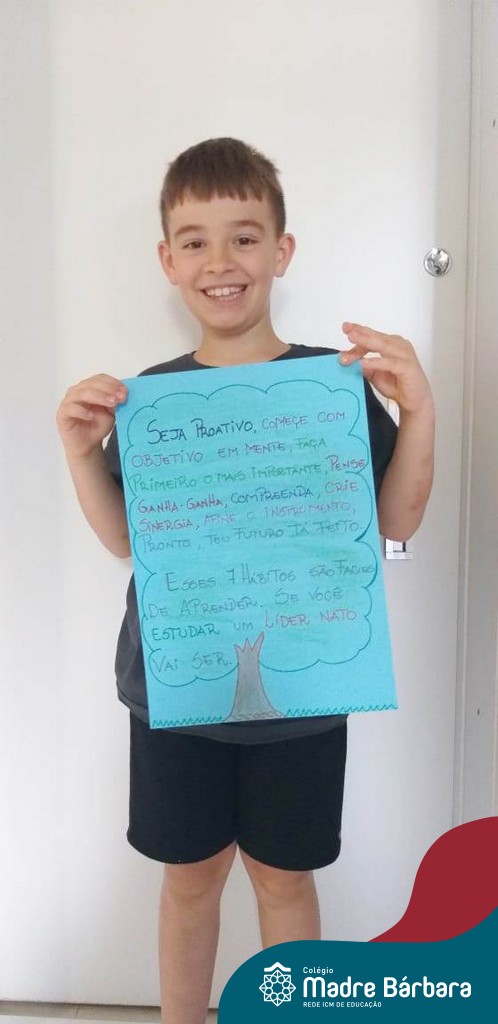 SEJA PROATIVO, COMEÇE COM
OBJETIVO EM MENTE, FAÇA
PRIMEIRO O MAIS IMPORTANTE, PENSE
GANHA-GANHA, COMPREENDA, CRIE
SINERGIA, AFINE O INSTRUMENTO,
PRONTO, TEU FUTURO TÁ FEITO.
ESSES 7 HÁBITOS SÃO FACIES
DE APRENDER. SE VOCÊ
ESTUDAR UM LÍDER NATO
VAI SER.
Colégio
Madre Bárbara
REDE ICM DE EDUCAÇÃO